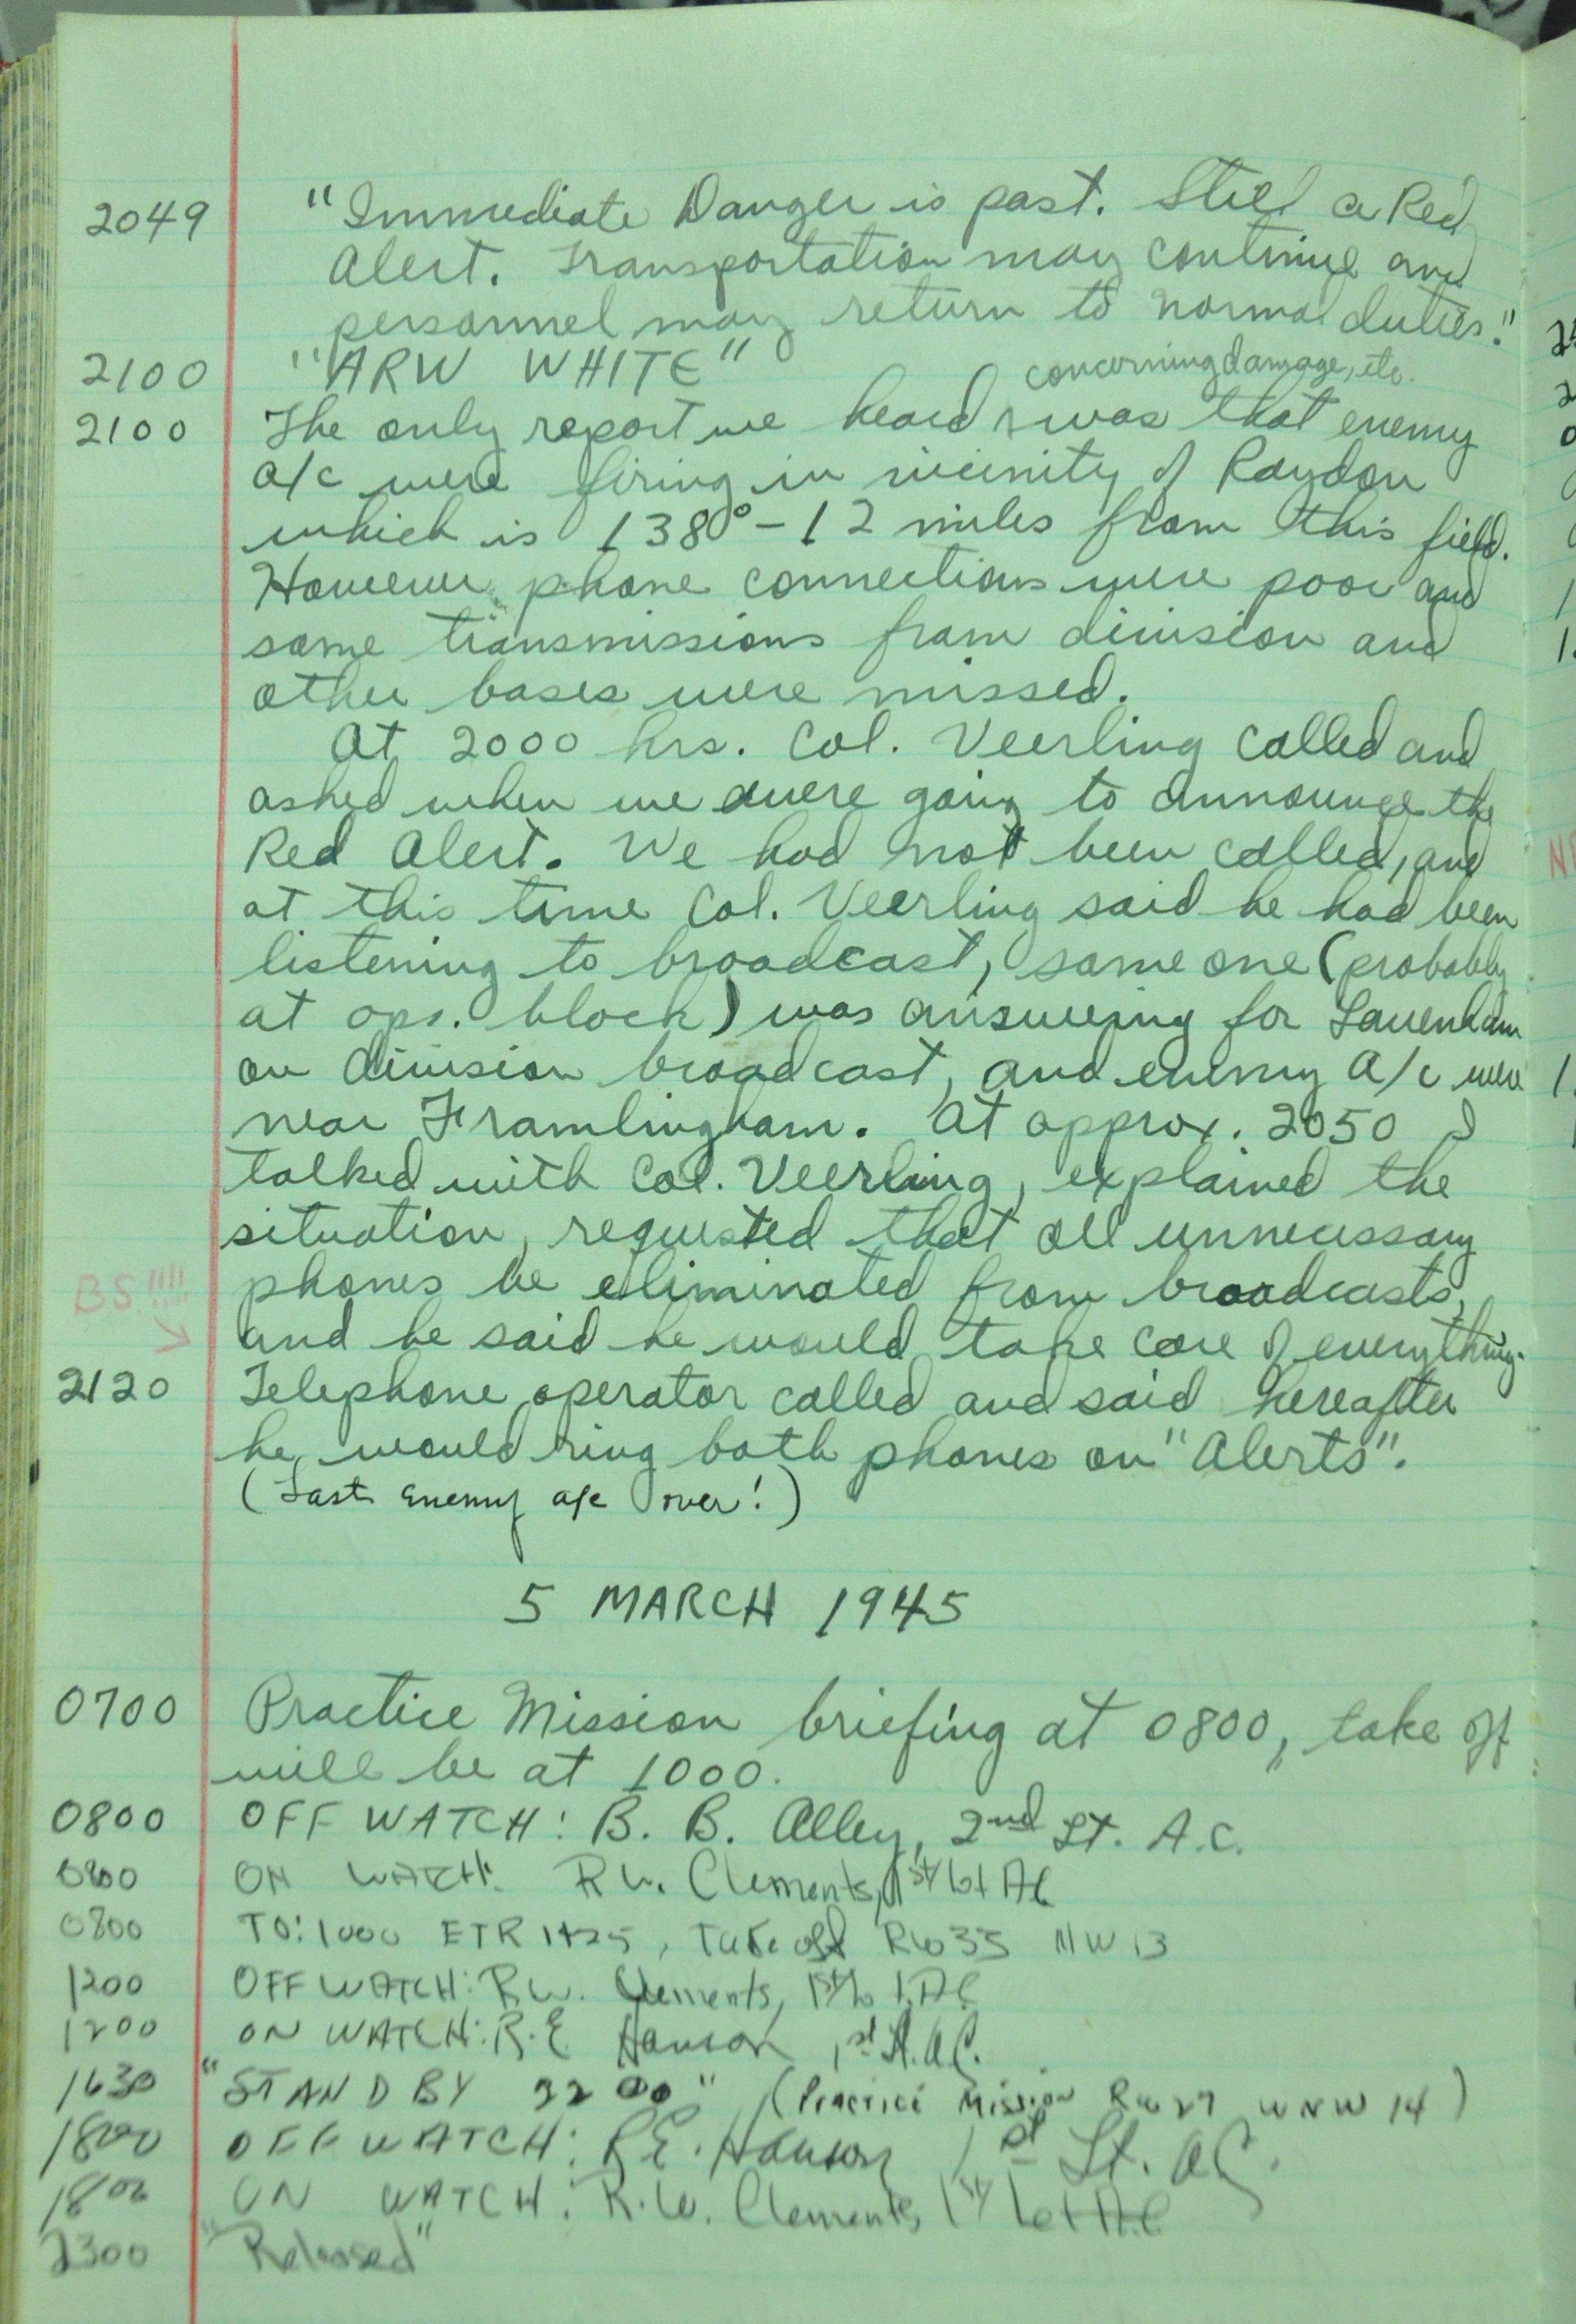 2049 "Immediate Danger is past. Still a Red
Alert. Transportation may continue and
personnel may return to normal duties."
2100 "ARW WHITE"
concerning damage, etc.
2100 The only report we heard was that enemy
a/c were firing in vicinity of Raydon
which is 138° - 12 miles from this field.
However phone connections were poor and
some transmissions from division and
other bases were missed.
At 2000 hrs. Col. Veerling called and
asked when we were going to announce the
Red Alert. We had not been called, and
at this time Col. Veerling said he had been
listening to broadcast, some one (probably
at ops. block) was answering for Lavenham
on division broadcast, and enemy a/c were
near Framlingham. At approx. 2050 I
talked with Col. Veerling, explained the
situation, requested that all unnecessary
phones be eliminated from broadcasts,
BS !!!!
and he said he would take care of everything.
2120 Telephone operator called and said hereafter
he would ring both phones on "Alerts".
(Last enemy a/c over!)
5 MARCH 1945
0700 Practice Mission briefing at 0800, take off
will be at 1000.
0800 OFF WATCH: B. B. Alley, 2nd Lt. A.C.
0800 ON WATCH: R W. Clements, 1st Lt AC
0800 TO: 1000 ETR 1425, Take off RW 35 NW 13
1200 OFF WATCH: R.W. Clements, 1st Lt. AC
1200 ON WATCH: R.E. Hanson 1st Lt. A.C.
1630 "STAND BY 2200" (Practice Mission RW 27 WNW 14)
1800 OFF WATCH: R.E. Hanson 1st Lt. AC.
1800 ON WATCH: R.W. Clements, 1st Lt AC
2300 "Released"